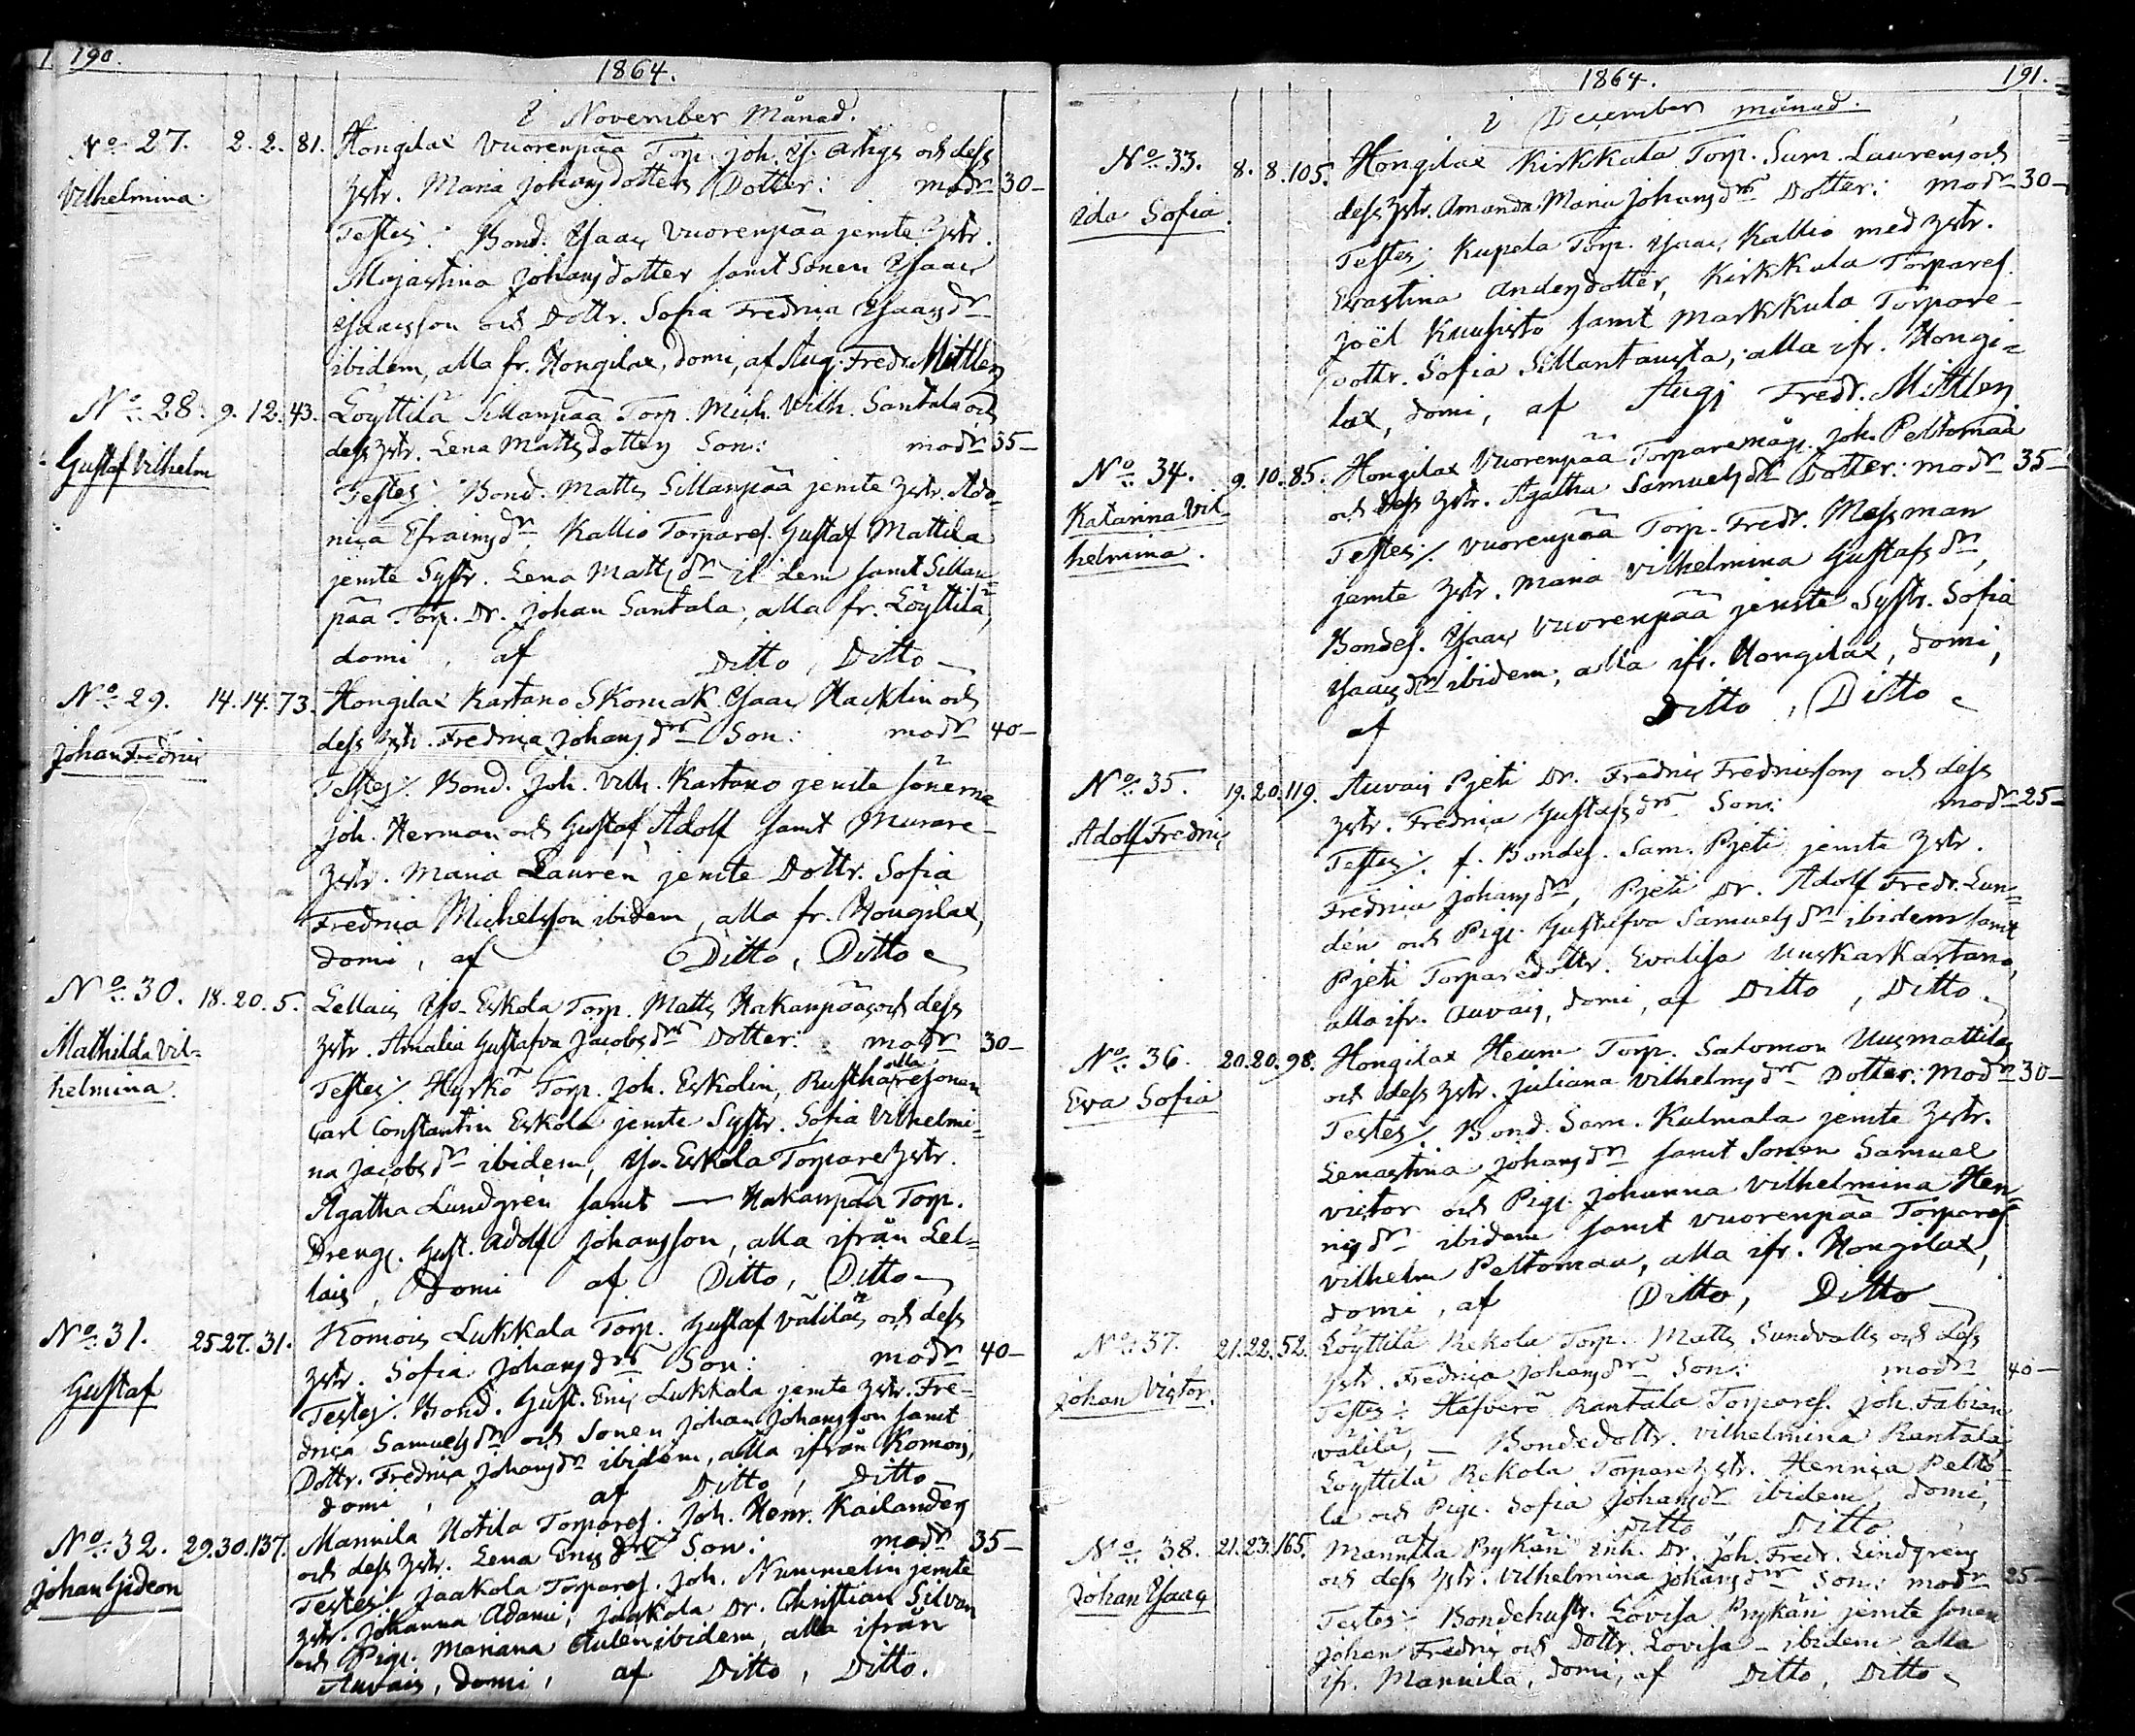 190.
1864.
i November Månad.
No 27. 2. 2. 81. Hongilax Vuorenpää Torp. Joh. och dess
Vilhelmina. Hstr. Maria Johansdotters Dotter: modr 30-
Testes: Bond. Isaac Vuorenpää jemte Hstr.
Majastina Johansdotter samt Sonen Isaac
Isaacsson och Dottr. Sofia Fredrica Isaacsdr
ibidem, alla fr. Hongilax, domi, af Aug. Fredr. Mittler
No 28. 9. 12. 43. Löyttilä Sillanpää Torp. Mich. Wilh. Santala och
Gustaf Vilhelm dess Hstr. Lena Mattsdotters Son: modr 35-
Testes: Bond. Matts Sillanpää jemte Hstr. Ado-
nica Efraimsdr, Kallio Torpares. Gustaf Mattila
jemte Systr. Lena Mattsdr ibidem samt Sillan-
pää Torp. Dr. Johan Santala, alla fr. Löyttilä,
domi, af Ditto, Ditto
No 29. 14. 14. 73. Hongilax Kartano Skomak. Isaac Hacklin och
Johan Fredric dess Hstr. Fredrica Johansdrs Son: modr 40-
Testes: Bond. Joh. Vilh. Kartano jemte sönerne
Joh. Herman och Gustaf Adolf samt Murare-
Hstr. Maria Lauren jemte Dottr. Sofia
Fredrica Michelsson ibidem, alla fr. Hongilax,
domi, af Ditto, Ditto
No 30. 18. 20. 5. Lellais Yso-Eskola Torp. Matts Hakanpääs och dess
Mathilda Vil-
helmina. Hstr. Amalia Gustafva Jacobsdrs Dotter: modr 30-
Testes: Hyrkö Torp. Joh. Eskolin, Rusthållaresonen
Carl Constantin Eskola jemte Systr. Sofia Vilhelmi-
na Jacobsdr ibidem, Yso-Eskola Torpare Hstr.
Agatha Lundgrén samt — Hakanpää Torp.
Dreng. Gust. Adolf Johansson, alla ifrån Lel-
lais, domi af Ditto, Ditto
No 31. 25 27. 31. Komois Lukkala Torp. Gustaf Välilä och dess
Gustaf Hstr. Sofia Johansdrs Son: modr 40-
Testes: Bond. Gust. Eric Lukkala jemte Hstr. Fre-
drica Samuelsdr och Sonen Johan Johansson samt
Dottr. Fredrica Johansdr ibidem, alla ifrån Komois,
domi, af Ditto, Ditto
No 32. 29. 30. 137. Mannila Uotila Torpares. Joh. Henr. Kailanders
Johan Gideon och dess Hstr. Lena Ericsdrs Son: modr 35-
Testes: Jaakola Torpares. Joh. Nummelin jemte
Hstr. Johanna Adami, Jaakola Dr. Christian Silvan
och Pig. Mariana Aulén ibidem, alla ifrån
Auvais, domi, af Ditto, Ditto.
1864. 191.
i December månad.
No 33. 8. 8. 105. Hongilax Kirkkala Torp. Sam. Laurens och
Ida Sofia. dess Hstr. Amanda Maria Johansdrs Dotter: modr 30-
Testes: Kupela Torp. Isaac Kallio med Hstr.
Evastina Andersdotter, Kirkkala Torpares.
Joël Kuusisto samt Markkula Torpare-
Dottr. Sofia Sillantausta, alla ifr. Hongi-
lax, domi, af Aug. Fredr. Mittler
No 34. 9. 10. 85. Hongilax Vuorenpää Torparemåg. Joh. Peltomaa
Katarina Vil-
helmina. och dess Hstr. Agatha Samuelsdrs Dotter: modr 35-
Testes: Vuorenpää Torp. Fredr. Messman
jemte Hstr. Maria Vilhelmina Gustafsdr,
Bondes. Isaac Vuorenpää jemte Systr. Sofia
Isaacsdr ibidem; alla ifr. Hongilax, domi,
af Ditto, Ditto
No 35. 19. 20. 119. Auvais Pjeti Dr. Fredric Fredricssons och dess
Adolf Fredric Hstr. Fredrica Gustafsdrs Son: modr 25-
Testes: f. Bondes. Sam. Pjeti jemte Hstr.
Fredrica Johansdr, Pjeti Dr. Adolf Fredr. Lun-
dén och Pig. Gustafva Samuelsdr ibidem samt
Pjeti Torparedottr. Evalisa Uuskartano,
alla ifr. Auvais, domi, af Ditto, Ditto
No 36. 20. 20. 98. Hongilax Heum Torp. Salomon Uusmattilas
Eva Sofia och dess Hstr. Juliana Vilhelmsdrs Dotter: modr 30-
Testes: Bond. Sam. Kulmala jemte Hstr.
Lenastina Johansdr samt Sonen Samuel
Victor och Pig. Johanna Vilhelmina Hen-
ricsdr ibidem samt Vuorenpää Torpares.
Vilhelm Peltomaa, alla ifr. Hongilax,
domi, af Ditto, Ditto
No 37. 21. 22. 52. Löyttilä Rekola Torp. Matts Sundvalls och dess
Johan Victor. Hstr. Fredrica Johansdrs Son: modr 40-
Testes: Hafverö Rantala Torpares. Joh. Fabian
Välilä, — Bondedottr. Vilhelmina Rantala
Löyttilä Rekola Torpare Hstr. Henrica Pelto-
la och Pig. Sofia Johansdr ibidem, domi,
af Ditto, Ditto
No 38. 21. 23. 165. Mannila Prykäri Inh. Dr. Joh. Fredr. Lindgrens
Johan Isaac och dess Hstr. Vilhelmina Johansdrs Son: modr 25-
Testes: Bondehustr. Lovisa Prykäri jemte sonen
Johan Fredric och Dottr. Lovisa — ibidem alla
ifr. Mannila, domi, af Ditto, Ditto